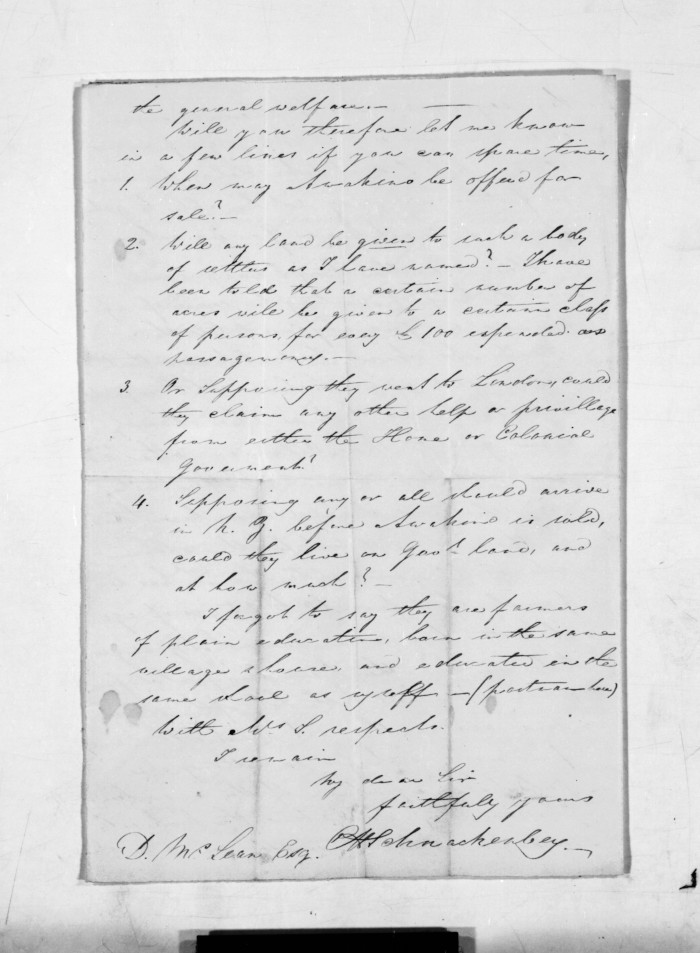 the general welfare. —
Will you therefore let me know
in a few lines if you can spare time,
1. When may Awakino be offered for
sale? —
2. Will any land be given to such a body
of settlers as I have named? — I have
been told that a certain number of
acres will be given to a certain class
of persons for every £100 expended as
passagemoney. —
3. Or Supposing they went to London, could
they claim any other help or privillage
from either the Home or Colonial
Goverment?
4. Supposing any or all should arrive
in N. Z. before Awakino is sold,
could they live on Govt. land, and
at how much? —
I forgot to say they are farmers
of plain education, born in the same
village & house and educated in the
same school as myself — (
With Mrs S. respects.
I remain
My dear Sir
faithfuly yours
D. McLean Esq. CH Schnackenberg. —